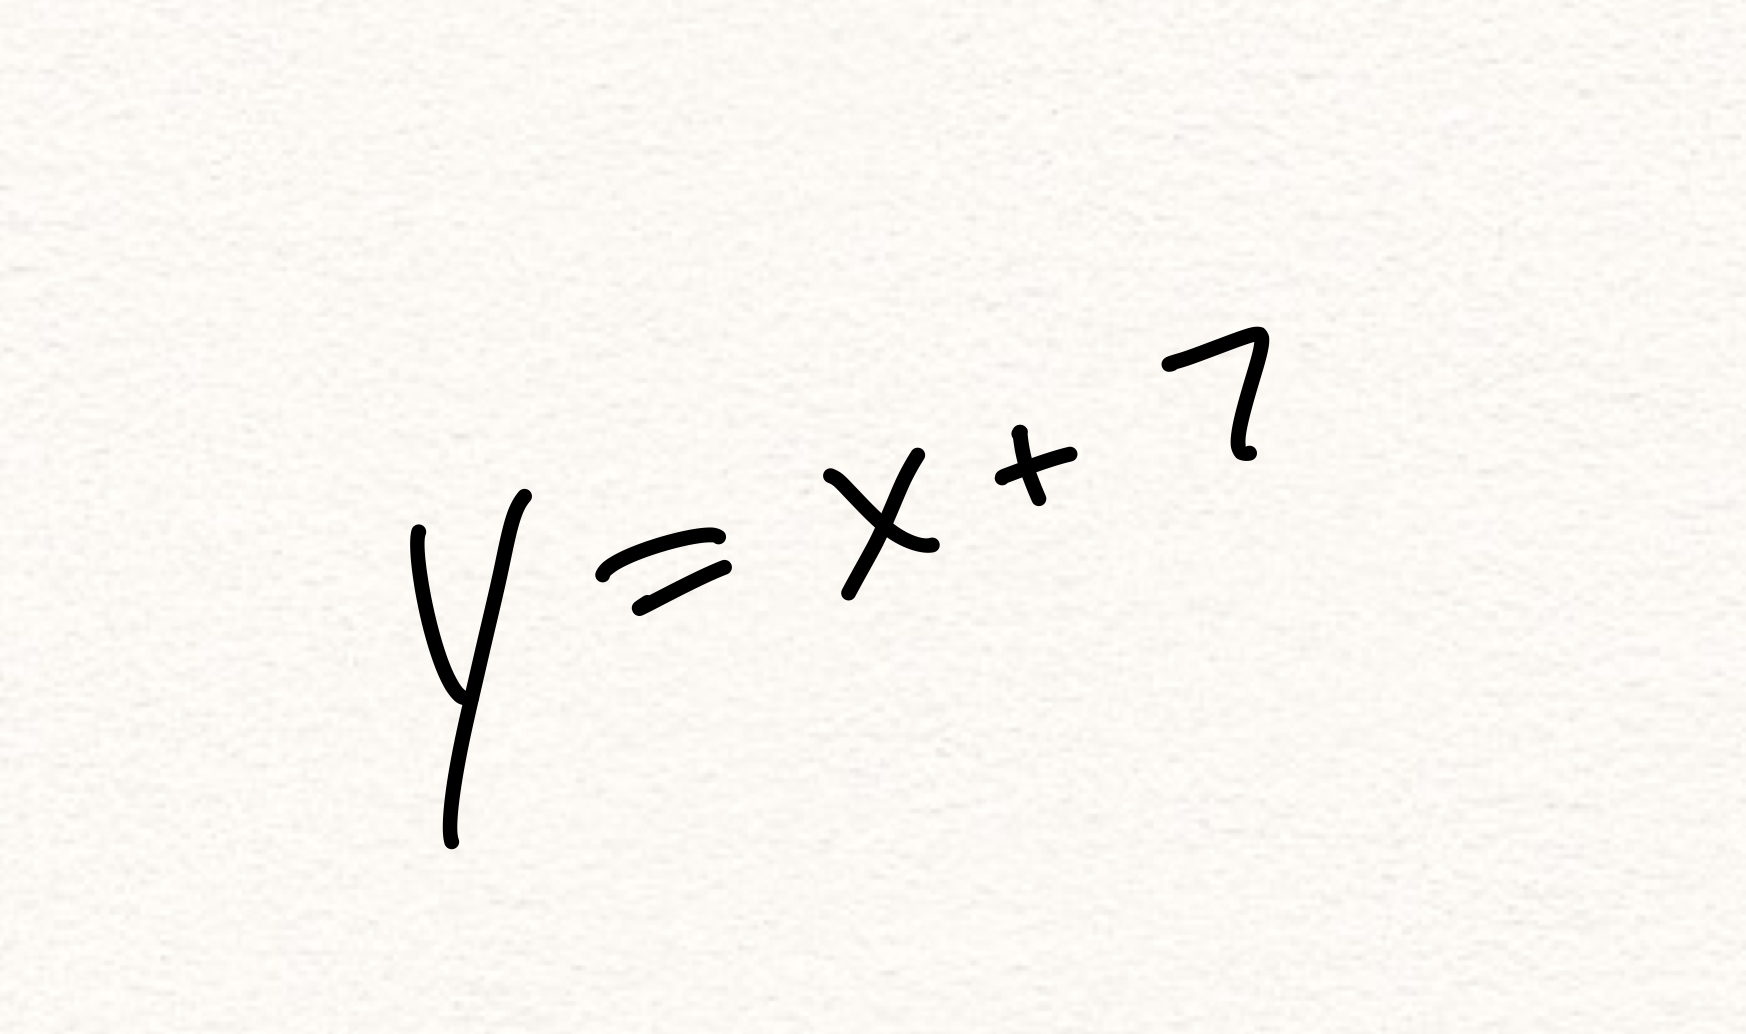 y = x + 7